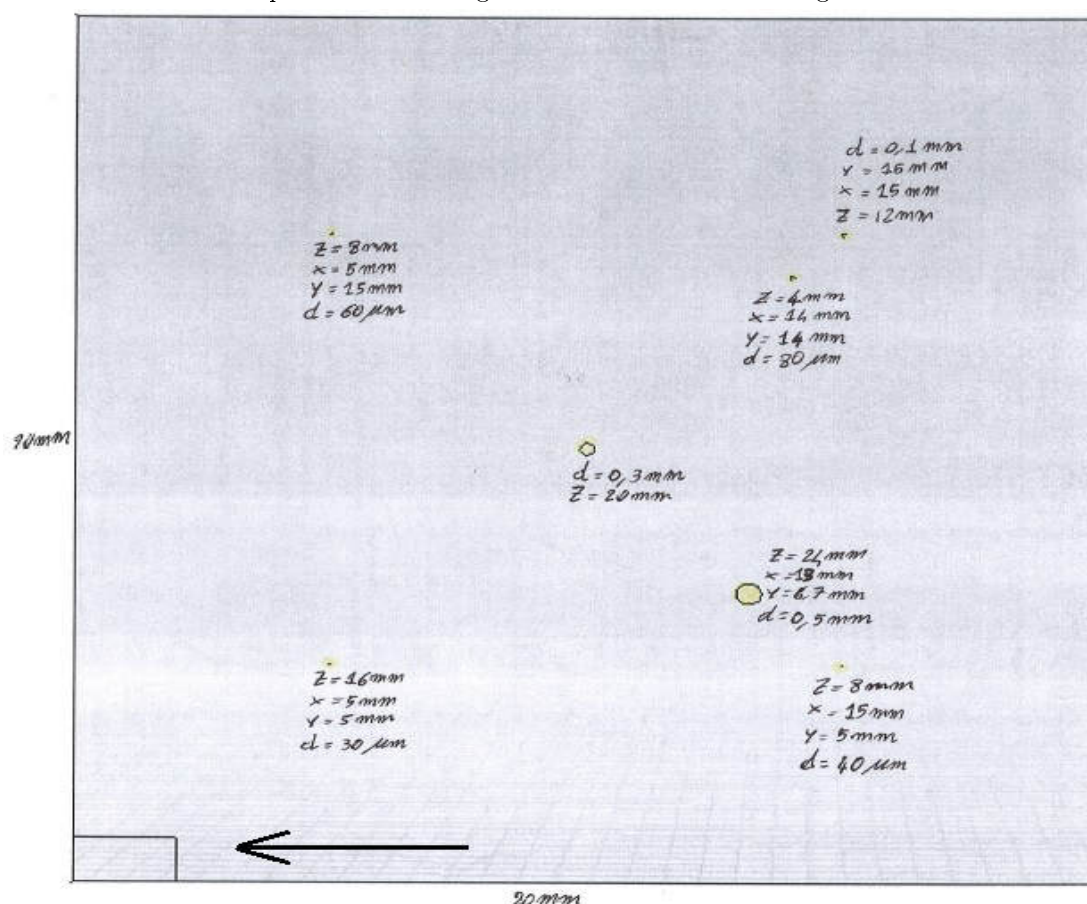 d = 0,1 mm
Y = 15 mm
x = 15 mm
Z = 12mm
Z = 8mm
x = 5mm
Y = 15mm
d = 60 µm
Z = 4mm
x = 14 mm
Y = 14 mm
d = 80 µm
d = 0,3mm
Z = 20mm
Z = 24mm
x = 13 mm
Y = 6,7 mm
d = 0,5mm
Z = 16mm
x = 5mm
Y = 5mm
d = 30 µm
Z = 8mm
x = 15mm
Y = 5mm
d = 40 µm
20mm